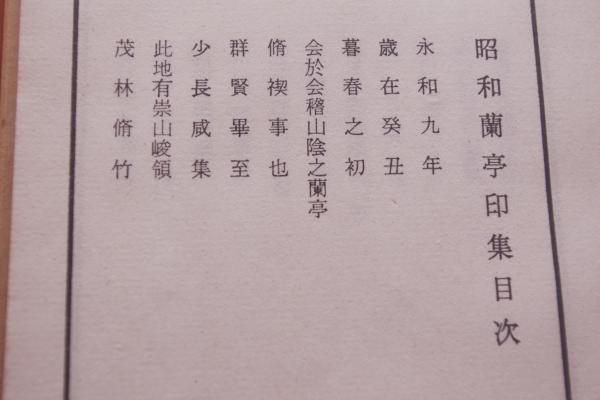 昭和蘭亭印集目次
永和九年
歳在癸丑
暮春之初
会於会稽山陰之蘭亭
脩禊事也
群賢畢至
少長咸集
此地有崇山峻領
茂林脩竹